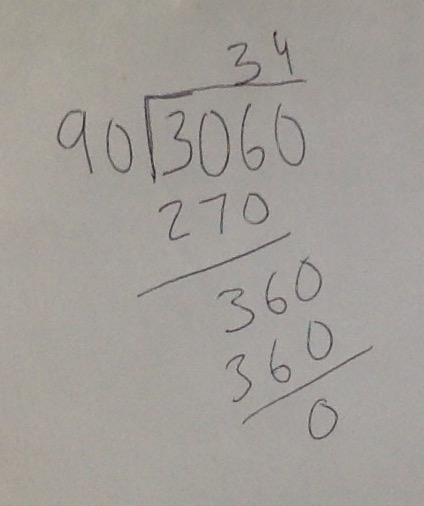 34
90 3060
270
360
360
0